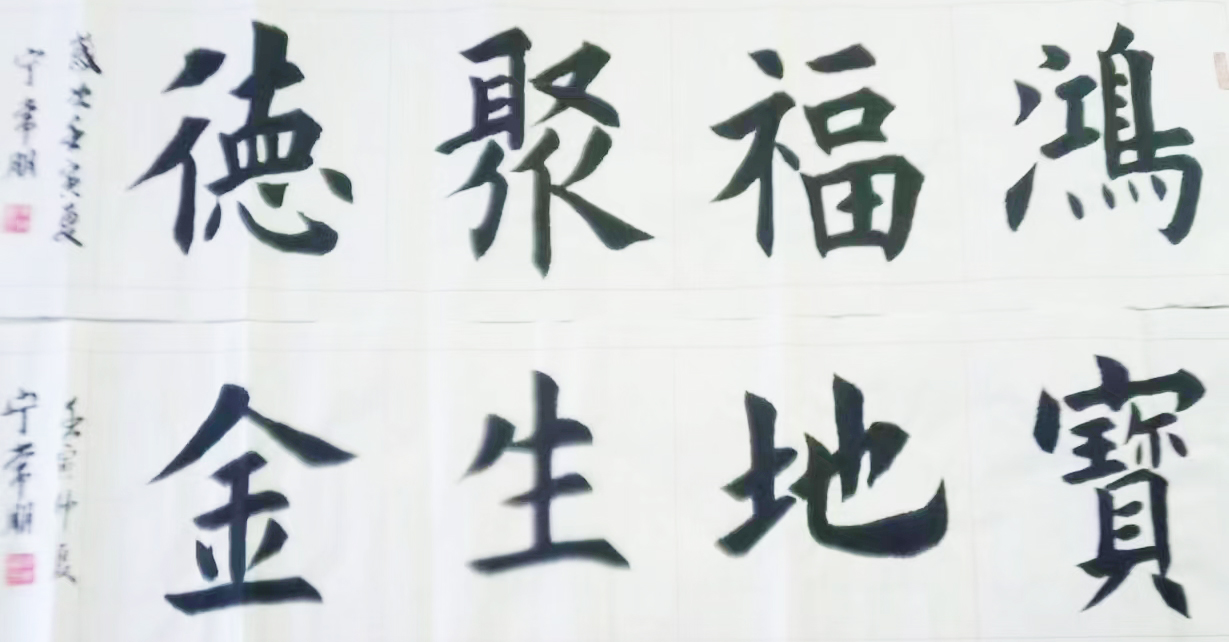 鴻福聚德
歲次壬寅夏
宁常朋
寶地生金
壬寅仲夏
宁常朋